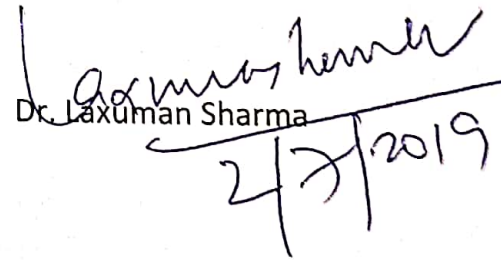 Laxuman Sharma
Dr. Laxuman Sharma
2/7/2019